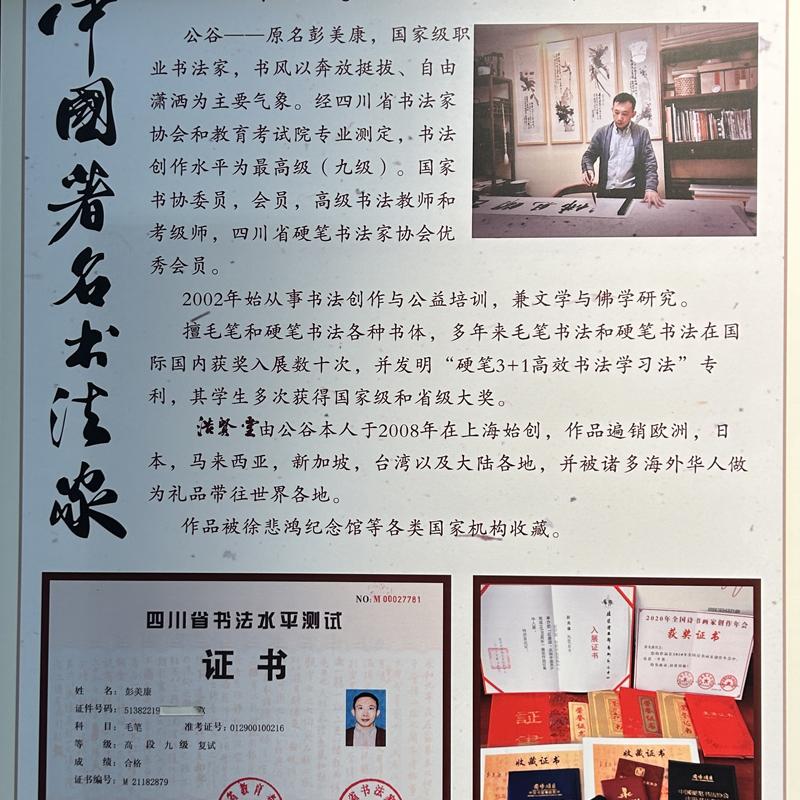 中國著名书法家
公谷——原名彭美康，国家级职
业书法家，书风以奔放挺拔、自由
潇洒为主要气象。经四川省书法家
协会和教育考试院专业测定，书法
创作水平为最高级（九级）。国家
书协委员，会员，高级书法教师和
考级师，四川省硬笔书法家协会优
秀会员。
2002年始从事书法创作与公益培训，兼文学与佛学研究。
擅毛笔和硬笔书法各种书体，多年来毛笔书法和硬笔书法在国
际国内获奖入展数十次，并发明“硬笔3+1高效书法学习法”专
利，其学生多次获得国家级和省级大奖。
由公谷本人于2008年在上海始创，作品遍销欧洲，日
本，马来西亚，新加坡，台湾以及大陆各地，并被诸多海外华人做
为礼品带往世界各地。
作品被徐悲鸿纪念馆等各类国家机构收藏。
NO:M 00027781
四川省书法水平测试
证书
姓 名： 彭美康
证件号码：51382219 X
科 目： 毛笔 准考证号：012900100216
等 级： 高 段 九 级 复试
成 绩： 合格
证书编号：M 21182879
入展证书
2020年全国诗书画家创作年会
获奖证书
証书
荣誉证书
收藏证书
收藏证书